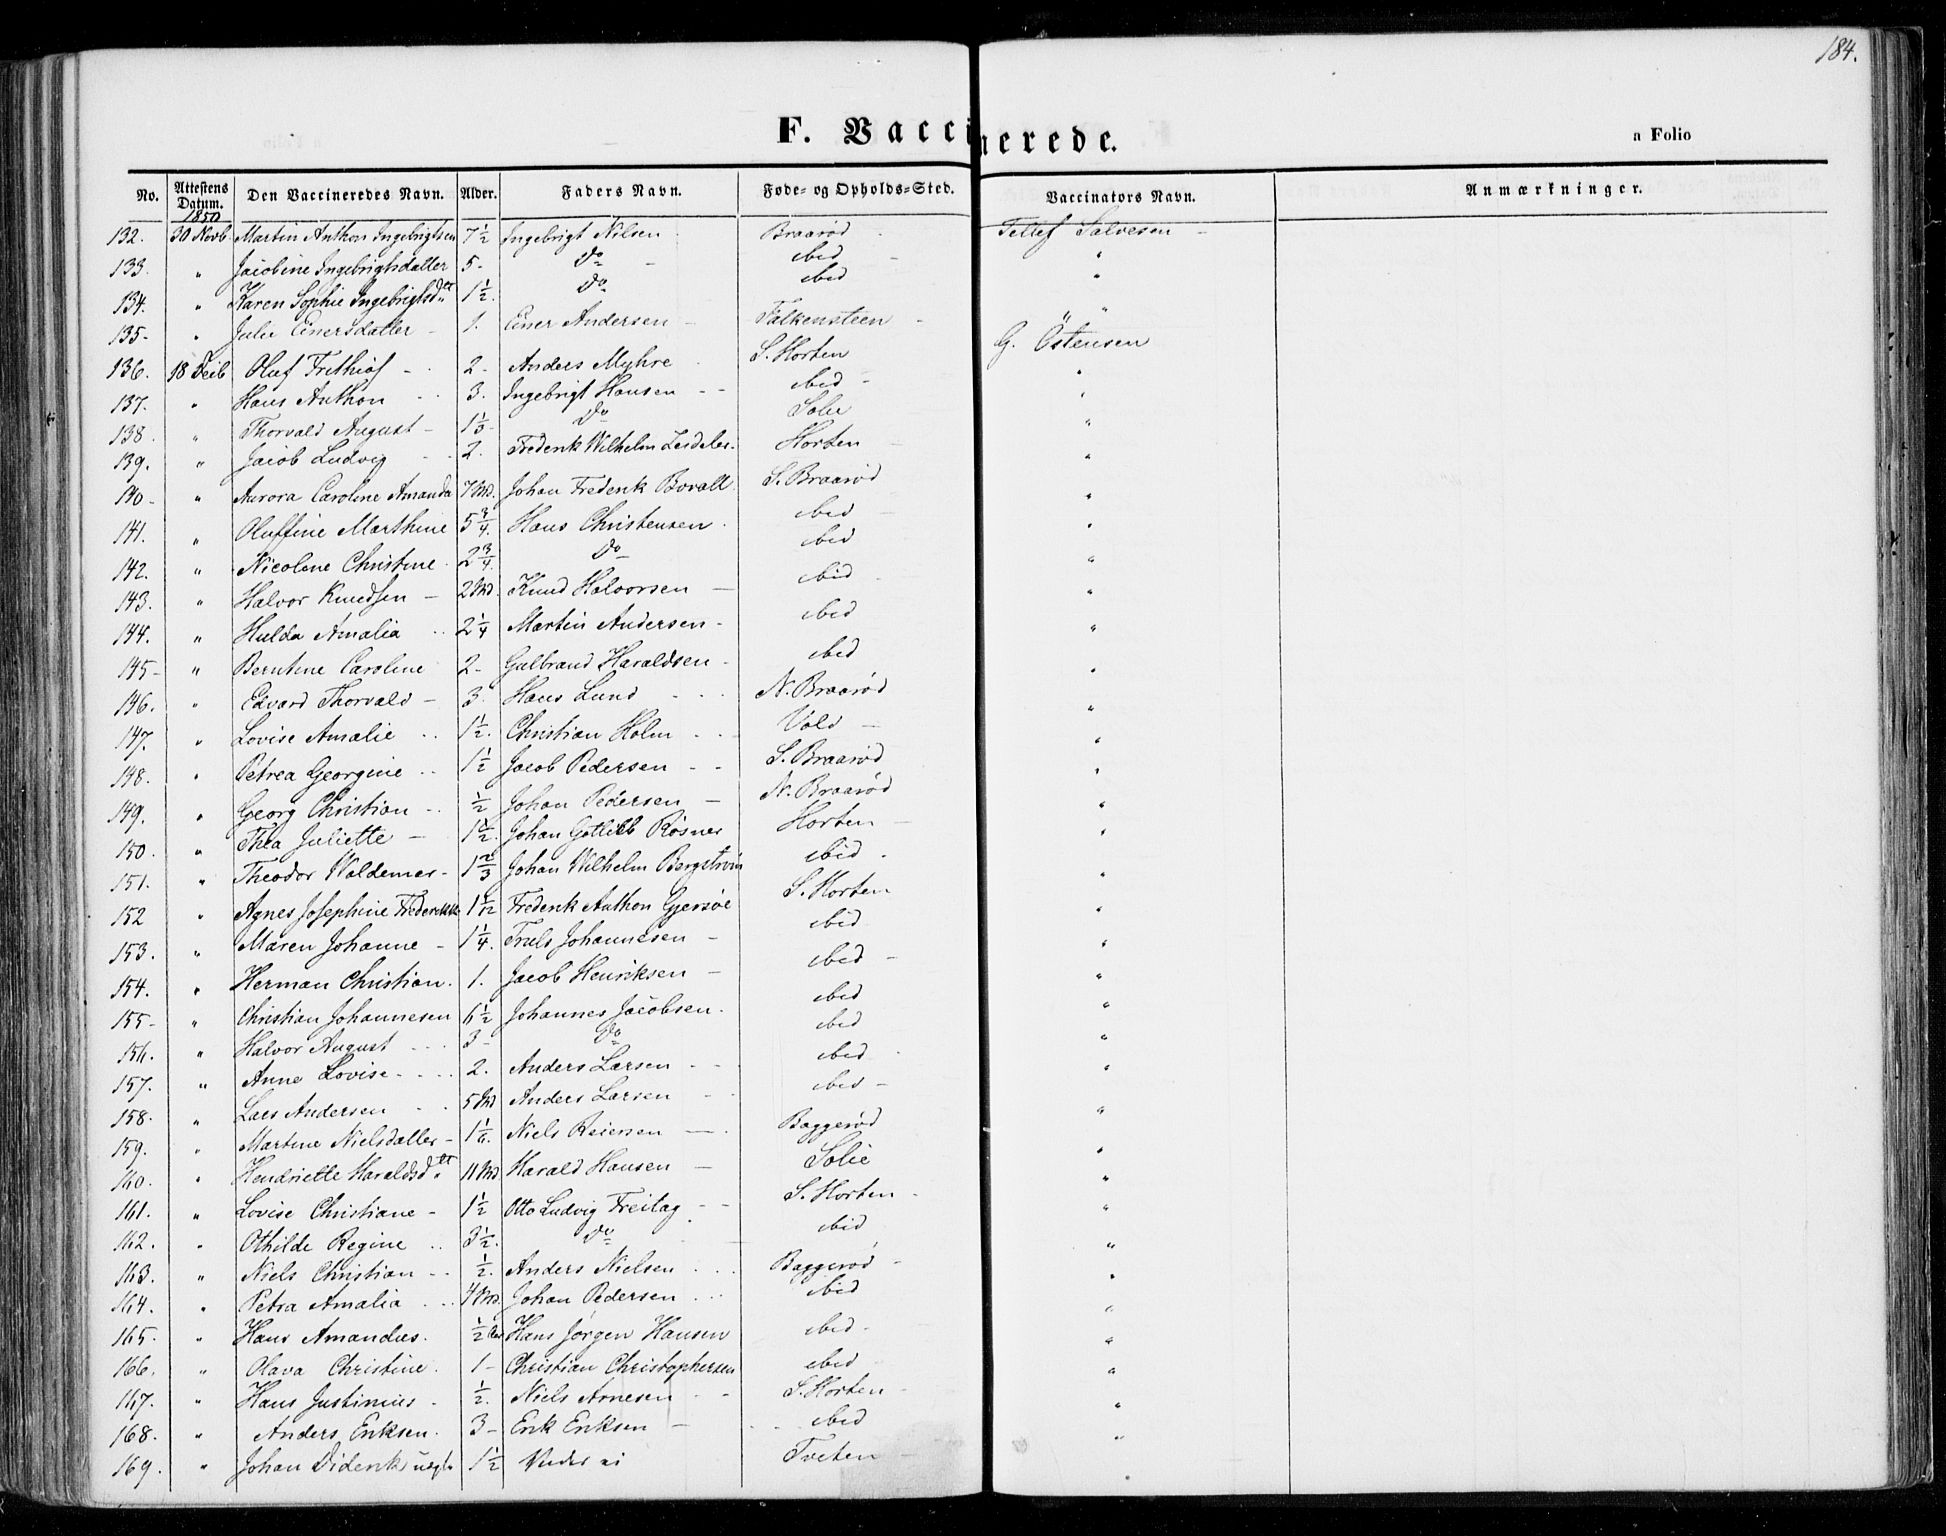 184.
F. Vaccinerede.
a Folio
No. Attestens Datum. Den Vaccineredes Navn. Alder. Faders Navn. Føde- og Opholds-Sted. Vaccinators Navn. Anmærkninger.
1850
132. 30 Novb. Martin Anthon Ingebrigtsen 7 1/2 Ingebrigt Nilsen Braarød Tellef Salvesen
133. " Jacobine Ingebrigtsdatter 5 - Do ibid "
134. " Karen Sophie Ingebrigtsdtt 1 1/2. Do ibid "
135 - " Julie Einersdatter - 1. Einer Andersen - Falkensteen " "
136. 18 Decb Oluf Frithiof - 2 - Anders Myhre S. Horten G. Östensen
137. " Hans Anthon 3. Ingebrigt Hansen - - ibid - "
138. " Thorvald August - 1 1/3 - Do Solie "
139. " Jacob Ludvig 2. Frederik Wilhelm Horten "
140 - " Aurora Caroline Amanda 7 Md. Johan Frederik Bovall S. Braarød "
141. " Oluffine Marthine 5 3/4. Hans Christensen ibid - "
142. " Nicoline Christine 2 3/4. Do ibid "
143. " Halvor Knudsen - 2 Md. Knud Halvorsen - ibid "
144. " Hulda Amalia 2 1/4 Martin Andersen - ibid "
145 - " Berntine Caroline 2 - Gulbrand Haraldsen - ibid "
146. " Edvard Thorvald - 3. Hans Lund N. Braarød "
147. " Lovise Amalie 1 1/2. Christian Holm Vold - "
148. " Petrea Georgine 1 1/2 Jacob Pedersen - - S. Braarød "
149. " Georg Christian 1/2 Johan Pedersen - N. Braarød "
150. " Thea Juliette - 1 1/2. Johan Gotlieb Rösner Horten - "
151. " Theodor Woldemar - 1 2/3 Johan Wilhelm Bergström ibid - "
152 " Agnes Josephine Frederikke 1 1/12 Frederik Anthon Gjersøe S. Horten "
153. " Maren Johanne - 1 1/4. Truls Johannesen - ibid "
154. " Herman Christian. 1. Jacob Henriksen - ibid - "
155 - " Christian Johannesen 6 1/2 Johannes Jacobsen. ibid "
156. " Halvor August 3 - Do ibid "
157. " Anne Lovise 2. Anders Larsen - - ibid "
158. " Lars Andersen 5 Md Anders Larsen - - ibid - "
159. " Martine Nielsdatter - 1 1/6. Niels Reiersen - Baggerød "
160. " Hendriette Haraldsdtt 11 Md Harald Hansen - Solie "
161. " Lovise Christiane - 1 1/2 Otto Ludvig Freitag - - S. Horten - "
162. " Othilde Regine 3 1/2. Do ibid "
163. " Niels Christian - - 1/2. Anders Nielsen Baggerød - "
164. " Petra Amalia 4 Md. Johan Pedersen ibid "
165. " Hans Amandus. 1/2 Hans Jørgen Hansen ibid - "
166. " Olava Christine. 1 - Christian Christophersen ibid - "
167. " Hans Justinius - 1/2. Niels Arnesen - - S. Horten - "
168. " Anders Eriksen. 3 - Erik Eriksen - ibid "
169. " Johan Diderik, uægte 1 1/2 Tveten - "